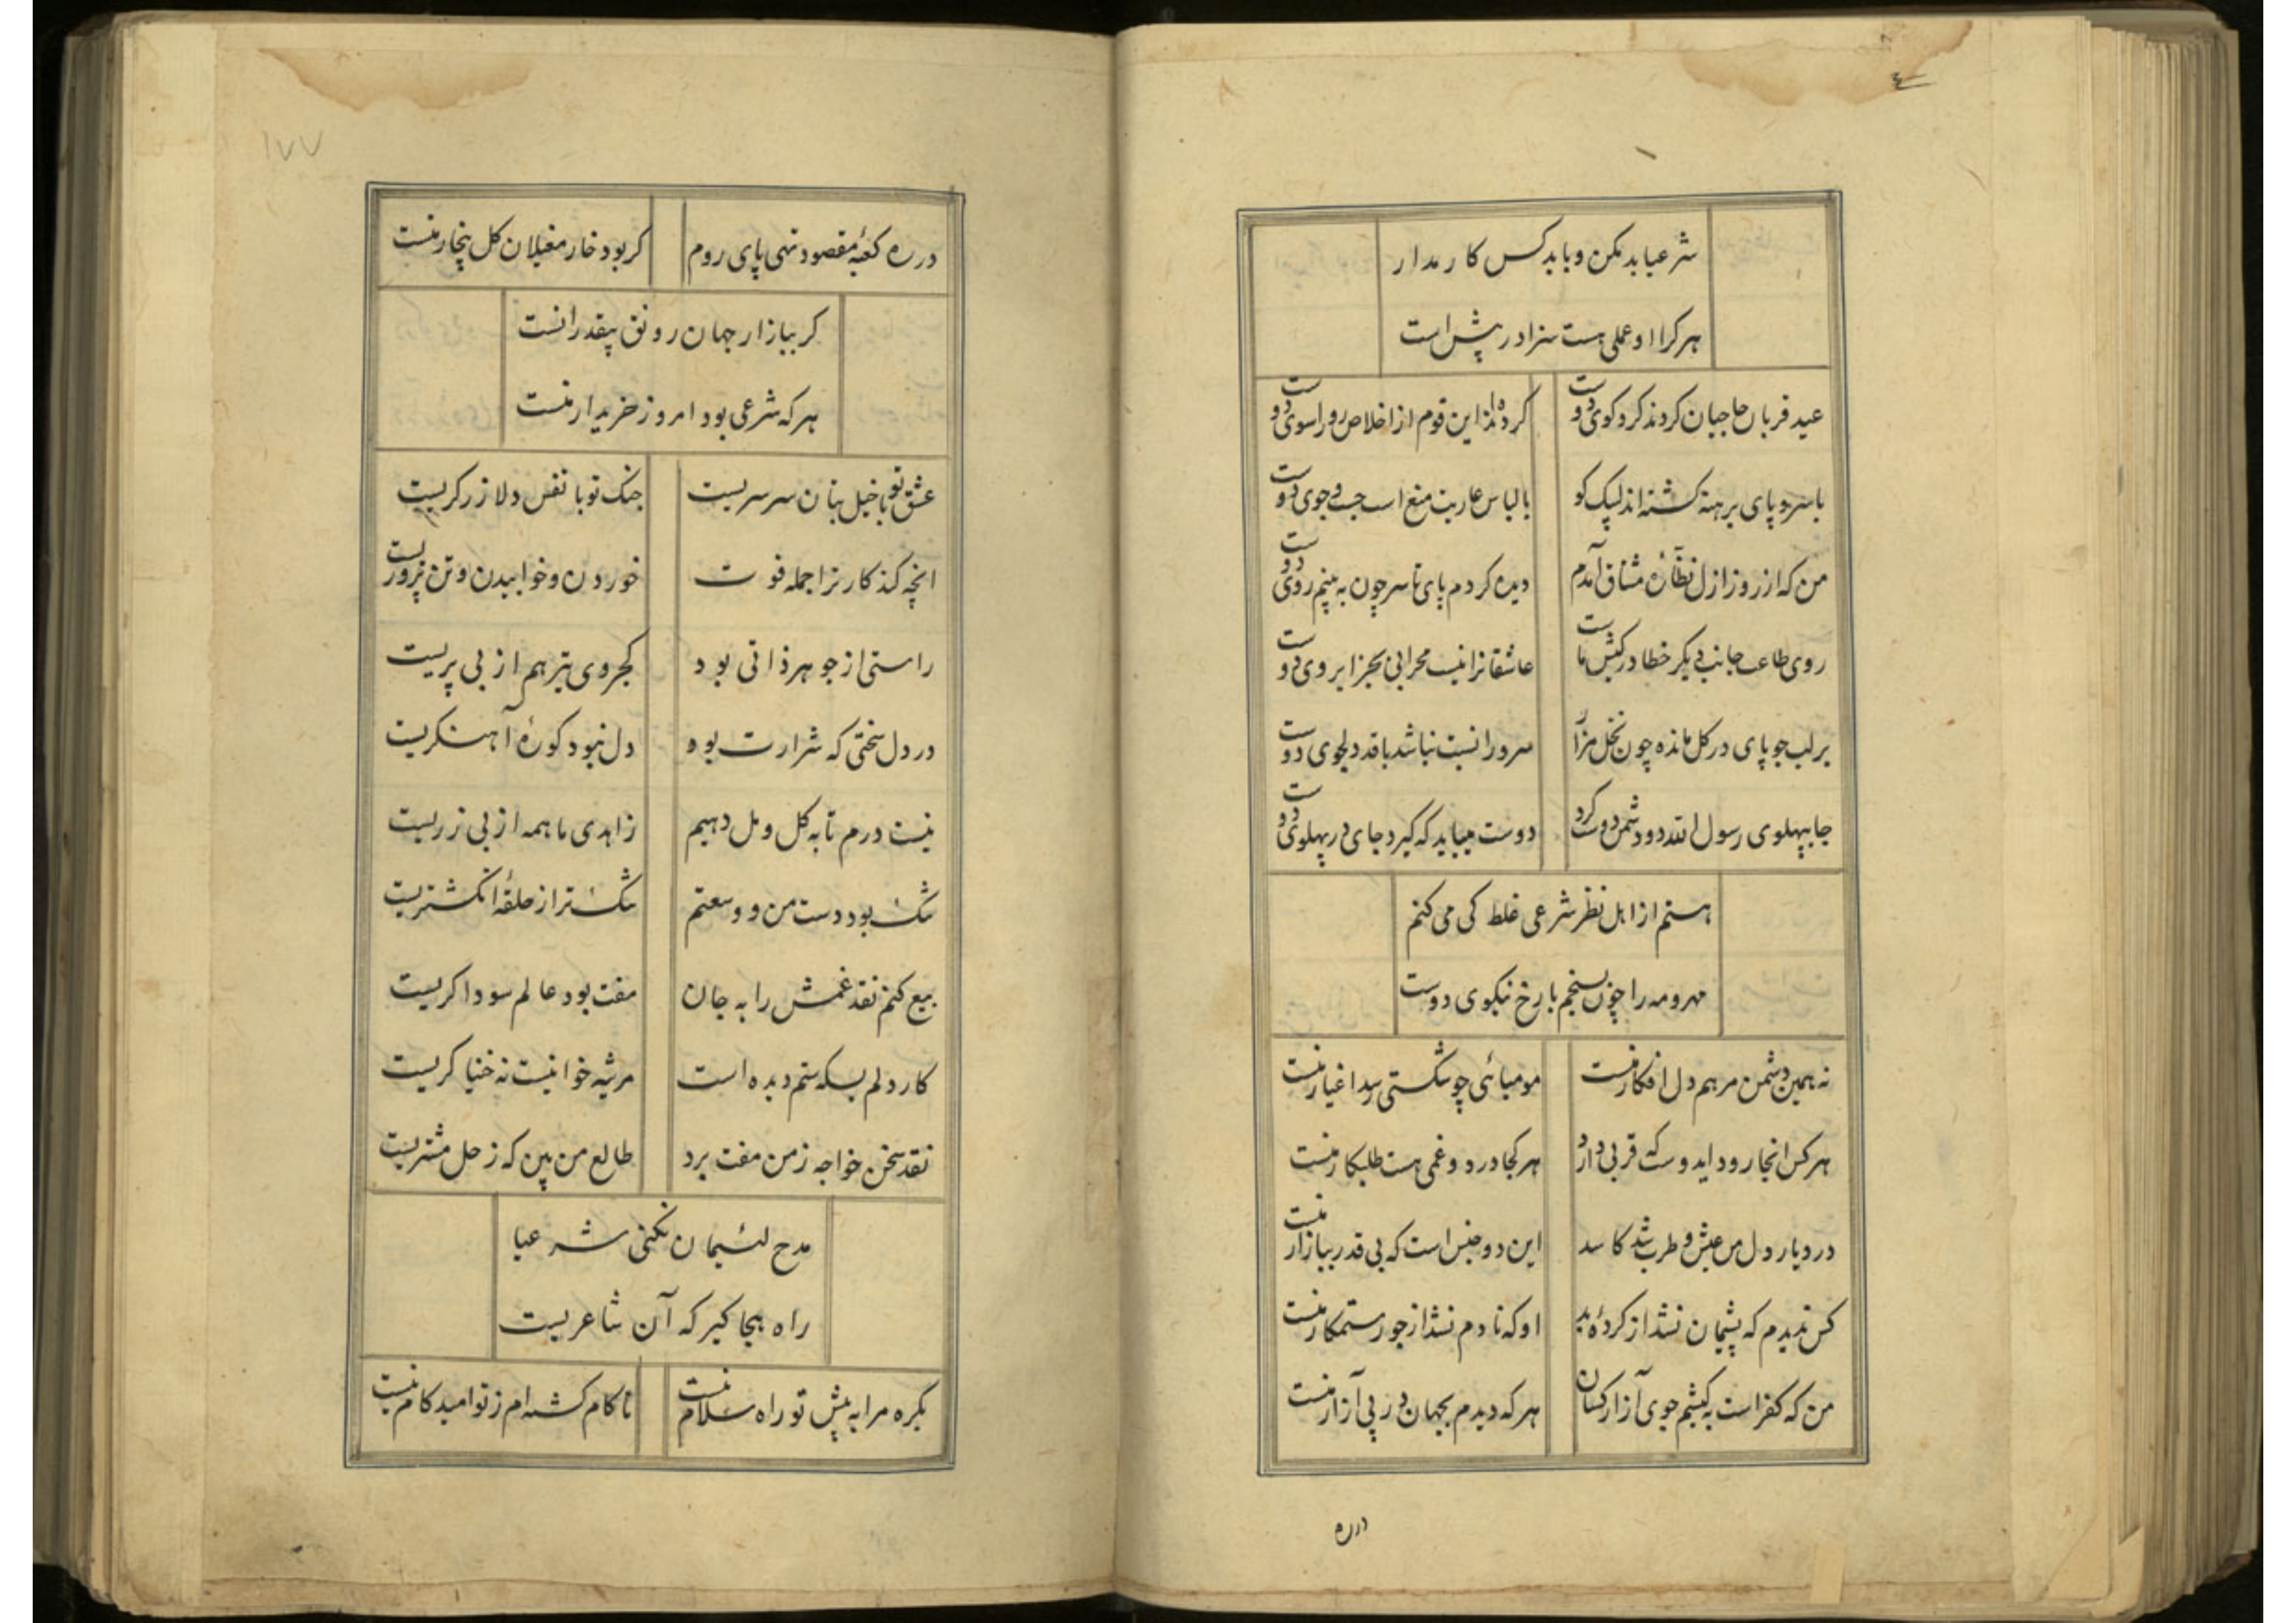 شرعیا بد مکن و با بد کس کار مدار
هر کرا او عملی هست سزا در پیش است
عید قربان حاجیان کردند کرد کوی دوست
کرده‌اند این قوم از اخلاص رو را سوی دوست
با سر و پای برهنه کشته‌اند لیک کو
با لباس عاریت منع است جست و جوی دوست
من که از روز ازل نظّاره مشتاق آمدم
دیده کردم پای تا سر چون به بینم روی دوست
روی طاعت جانب دیکر خطا در کیش ماست
عاشقانرا نیست محرابی بجز ابروی دوست
بر لب جو پای در کل مانده چون نخل مزار
سرو را نسبت نباشد با قد دلجوی دوست
جا بپهلوی رسول الله دو دشمن دوست کرد
دوست میباید که کیرد جای در پهلوی دوست
هستم از اهل نظر شرعی غلط کی می کنم
مهر و مه را چون بسنجم با رخ نیکوی دوست
نه همین دشمن مرهم دل افکار منست
مومیائی چو شکستی رسد اغیار منست
هر کس انجا رود ایدوست که قربی دارد
هر کجا درد و غمی هست طلبکار منست
در دیار دل من عیش و طرب شد کاسد
این دو جنس است که بی قدر ببازار منست
کس ندیدم که پشیمان نشد از کردهٔ بد
او که نادم نشد از جور ستمکار منست
من که کفر است به کیشم جوی آزار کسان
هر که دیدم بجهان در پی آزار منست
در ره
۱۷۷
در ره کعبهٔ مقصود نهی پای روم
کر بود خار مغیلان کل بیخار منست
کر ببازار جهان رونق بیقدرانست
هر که شرعی بود امروز خریدار منست
عشق تو با خیل بتان سرسریست
جنک تو با نفس دلا زرکریست
انچه کند کار ترا جمله فوت
خوردن و خوابیدن و تن پروریست
راستی از جوهر ذاتی بود
کجروی تیر هم از بی پریست
در دل سختی که شرارت بود
دل نبود کورهٔ آهنکریست
نیست درم تا به کل و مل دهیم
زاهدی ما همه از بی زریست
تنک بود دست من و وسعتم
تنک تر از حلقهٔ انکشتریست
بیع کنم نقد غمش را به جان
مفت بود عالم سوداکریست
کار دلم بسکه ستم دیده است
مرثیه خوانیست نه خنیاکریست
نقد سخن خواجه ز من مفت برد
طالع من بین که زحل مشتریست
مدح لئیمان نکنی شرعیا
راه هجا کیر که آن شاعریست
یکره مرا به پیش تو راه سلام نیست
ناکام کشته‌ام ز تو امید کام نیست